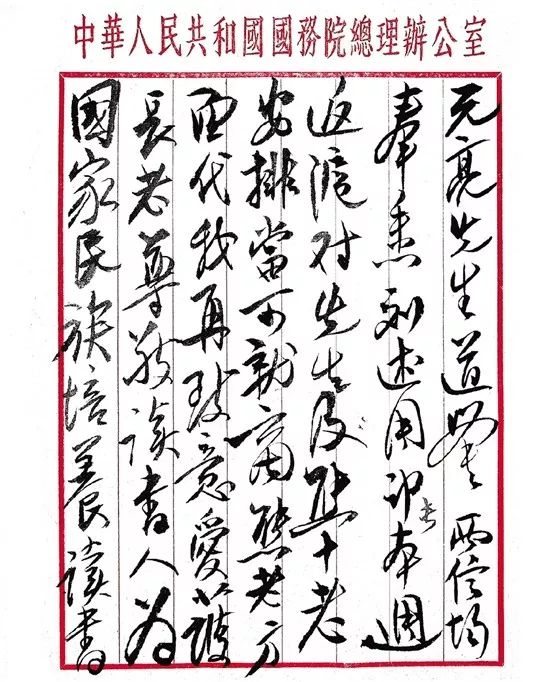 中華人民共和國國務院總理辦公室
元亮先生道鑒 兩信均
奉悉刘述周部长本週
返滬对先生及熊十老
安排當可就商熊老方
面代我再致意愛護
長老尊敬读書人为
國家民族培養读書